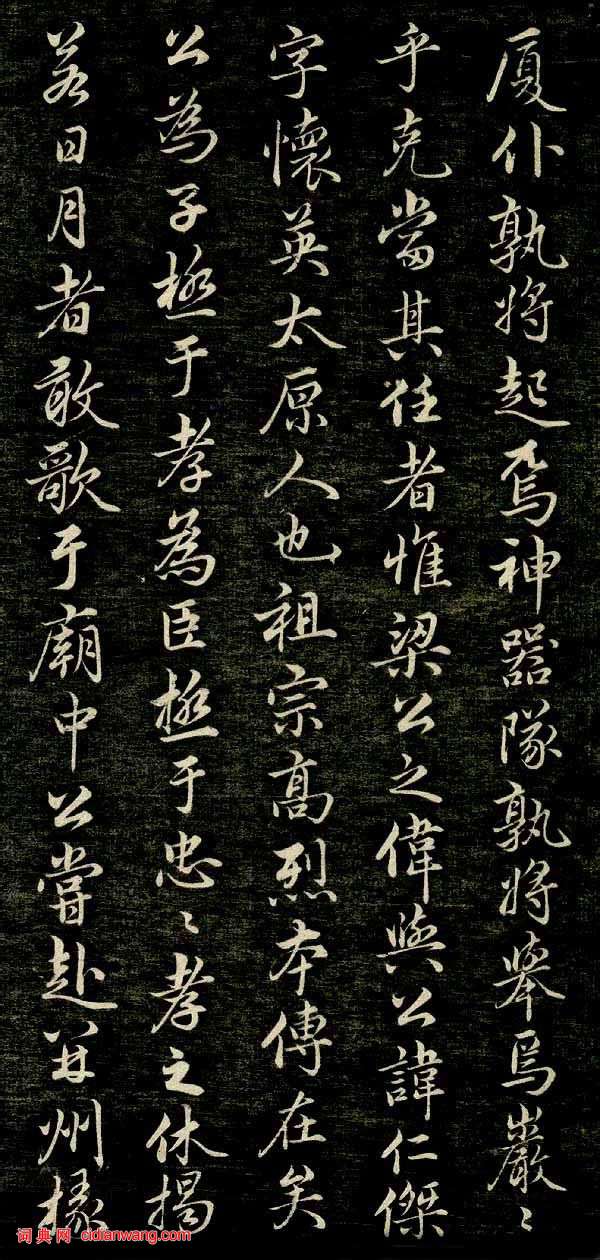 厦仆孰将起焉神器隊孰将舉焉巖〻
乎克當其任者惟梁公之偉歟公諱仁傑
字懷英太原人也祖宗高烈本傳在矣
公為子極于孝為臣極于忠〻孝之休揭
若日月者敢歌于廟中公嘗赴并州掾
词典网 cidianwang.com